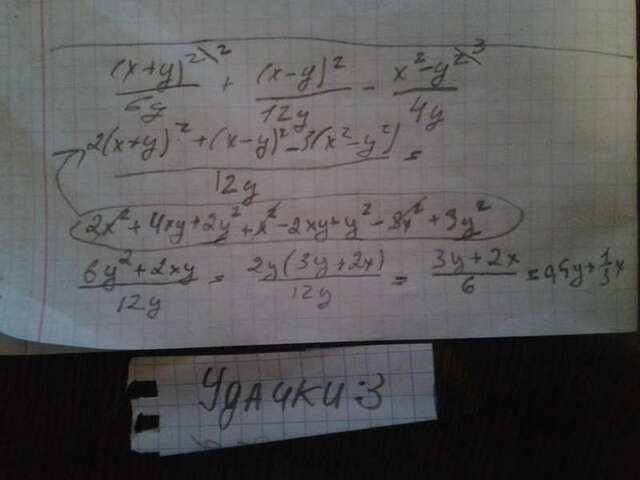 (x+y)²\² / 6y + (x-y)² / 12y - x²-y²\³ / 4y
2(x+y)²+(x-y)²-3(x²-y²) / 12y =
2x²+4xy+2y²+x²-2xy+y²-3x²+3y²
6y²+2xy / 12y = 2y(3y+2x) / 12y = 3y+2x / 6 = 0,5y+1/3x
Удачки:3